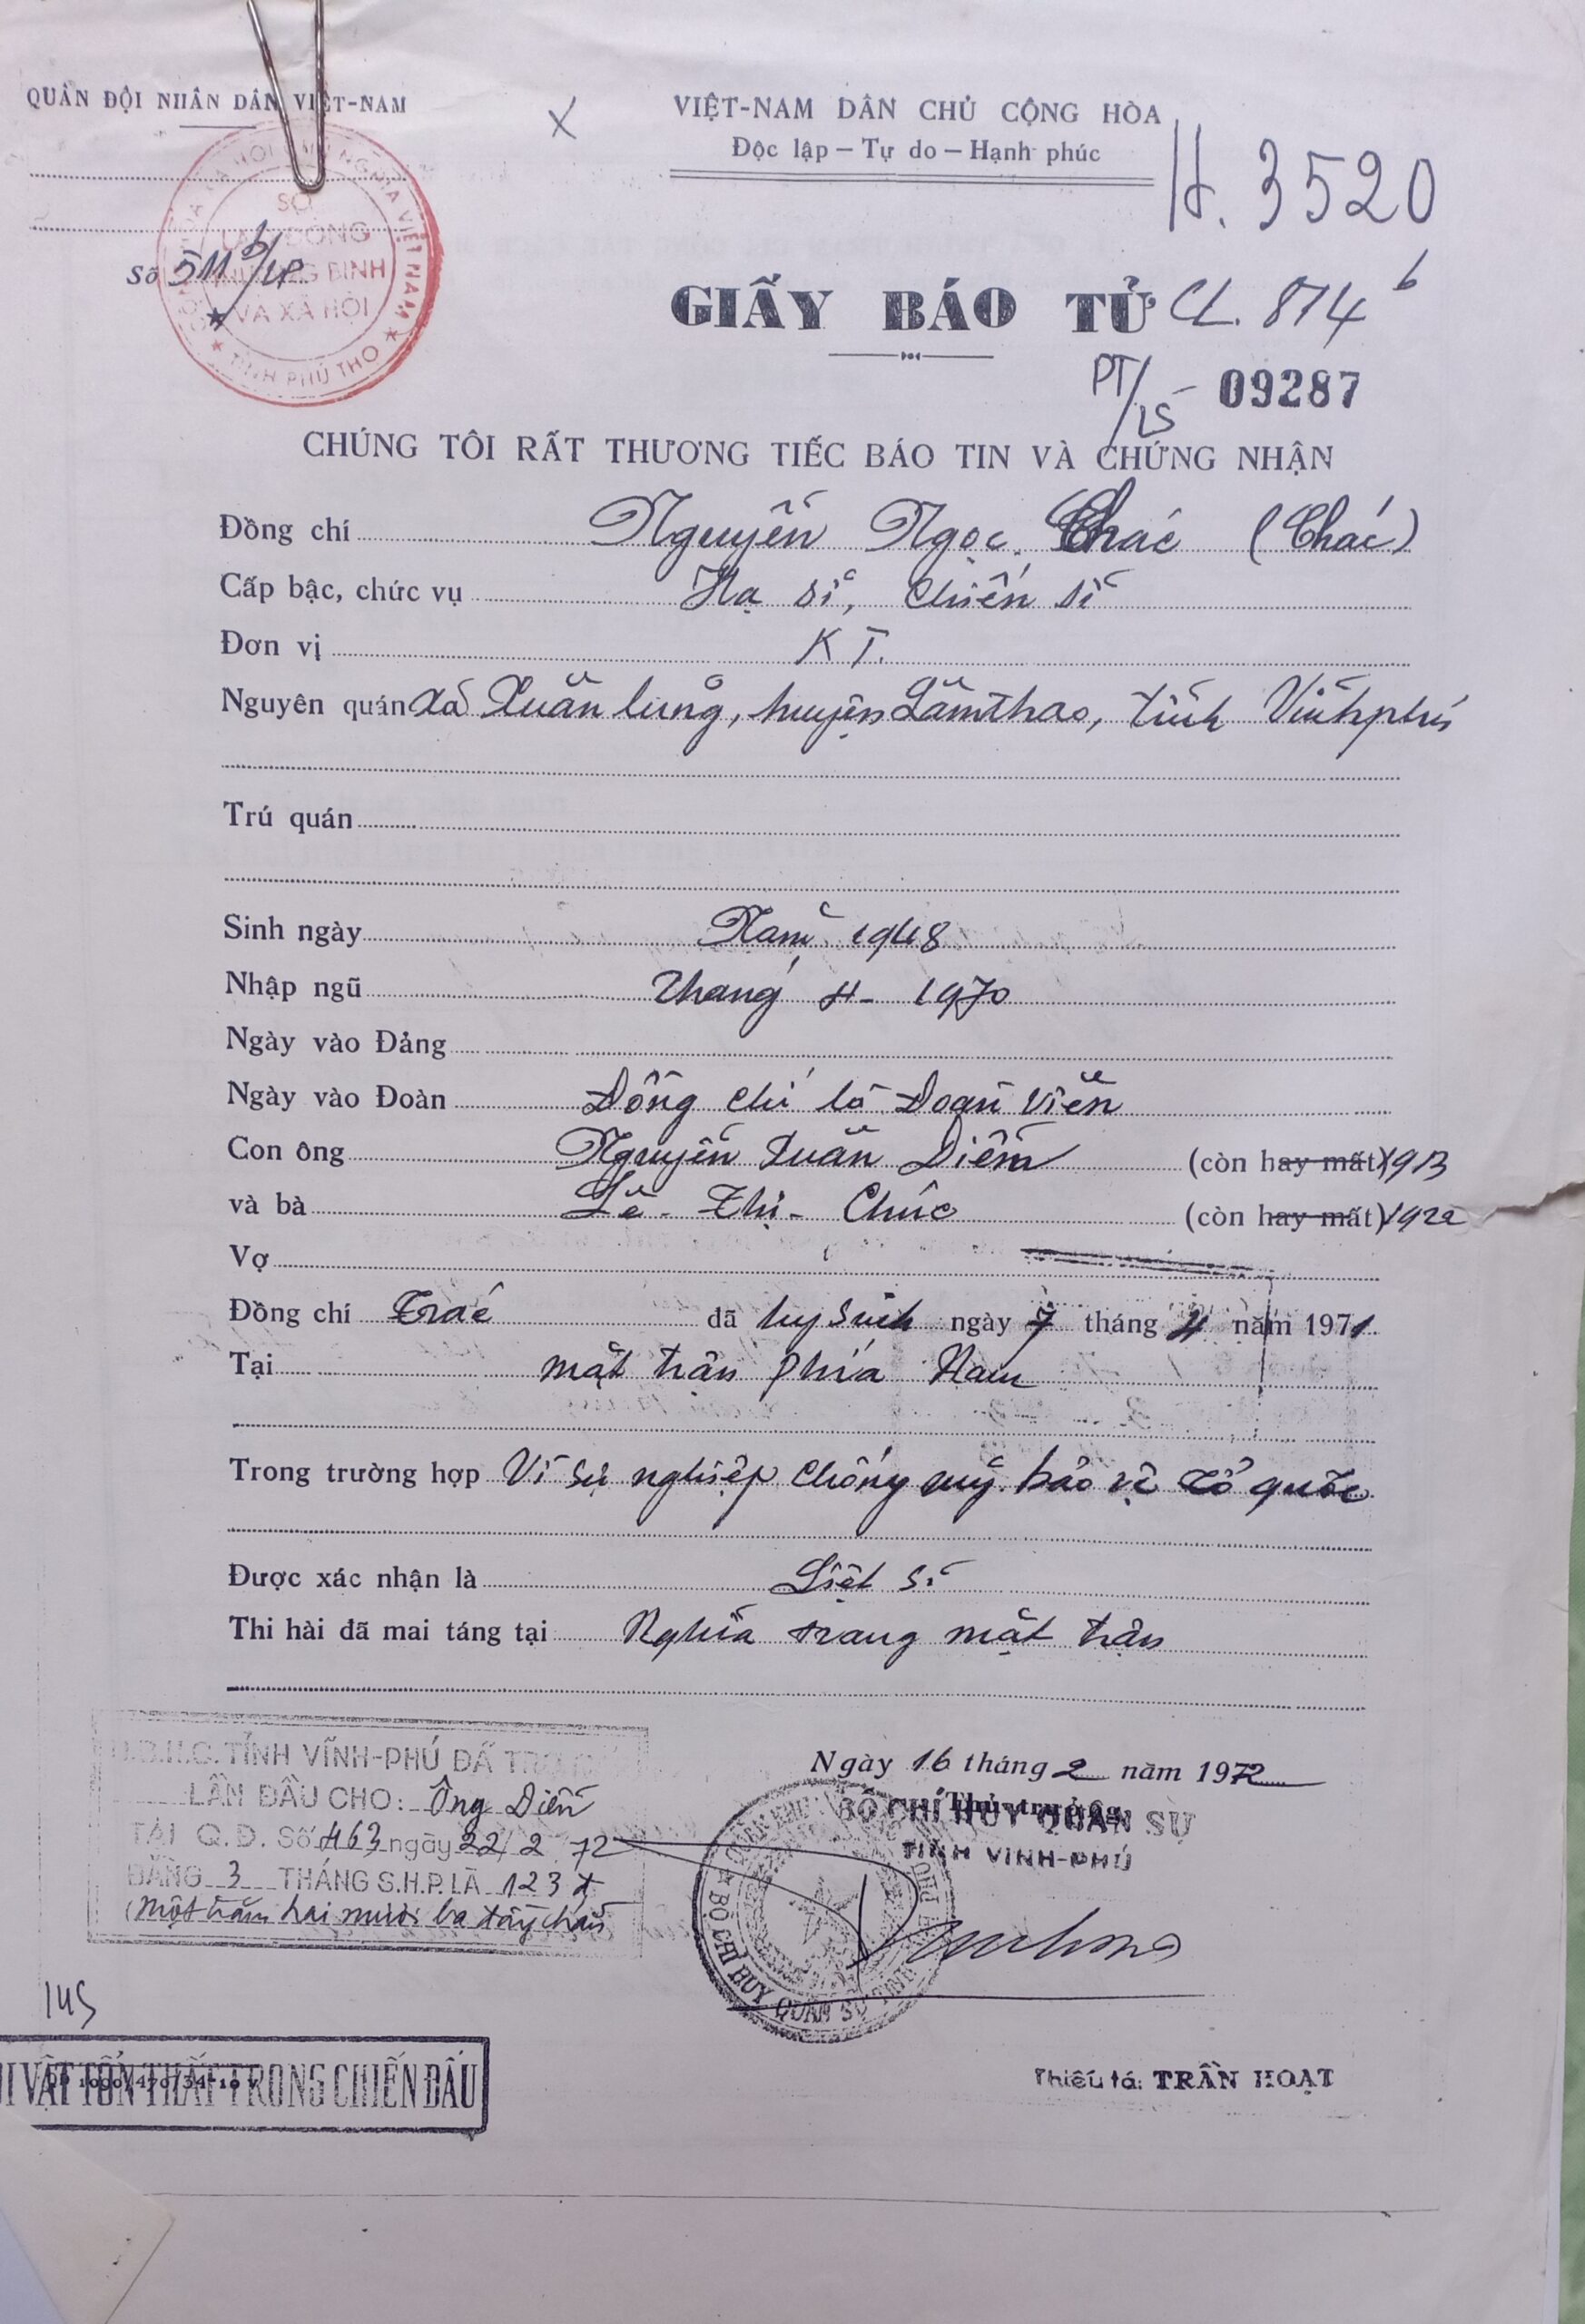 QUÂN ĐỘI NHÂN DÂN VIỆT-NAM
VIỆT-NAM DÂN CHỦ CỘNG HÒA
Độc lập — Tự do — Hạnh phúc
H. 3520
SỞ
LAO ĐỘNG
THƯƠNG BINH
VÀ XÃ HỘI
TỈNH PHÚ THỌ
Số 511b/LP
GIẤY BÁO TỬ
CL. 874 b
PT/LS 09287
CHÚNG TÔI RẤT THƯƠNG TIẾC BÁO TIN VÀ CHỨNG NHẬN
Đồng chí Nguyễn Ngọc Chác (Chác)
Cấp bậc, chức vụ Hạ sĩ, Chiến sĩ
Đơn vị KT.
Nguyên quán Xã Xuân lũng, huyện Lâm thao, tỉnh Vĩnh phú
Trú quán
Sinh ngày Năm 1948
Nhập ngũ Tháng 4 - 1970
Ngày vào Đảng
Ngày vào Đoàn Đồng chí là Đoàn viên
Con ông Nguyễn Xuân Diễm (còn hay mất) 1913
và bà Lê - Thị - Chúc (còn hay mất) 1922
Vợ
Đồng chí Trác đã hy sinh ngày 7 tháng 4 năm 1971
Tại mặt trận phía Nam
Trong trường hợp Vì sự nghiệp chống Mỹ bảo vệ Tổ quốc
Được xác nhận là Liệt sĩ
Thi hài đã mai táng tại Nghĩa trang mặt trận
TỈNH VĨNH-PHÚ ĐÃ
LẦN ĐẦU CHO: Ông Diễn
TẠI Q.Đ. Số 463 ngày 22/2 72
BẰNG 3 THÁNG S.H.P. LÀ 123đ
(Một trăm hai mươi ba đồng chẵn
Ngày 16 tháng 2 năm 1972
Thủ trưởng
BỘ CHỈ HUY QUÂN SỰ
TỈNH VĨNH-PHÚ
BỘ CHỈ HUY QUÂN SỰ TỈNH
145
VẬT TỔN THẤT TRONG CHIẾN ĐẤU
Thiếu tá: TRẦN HOẠT